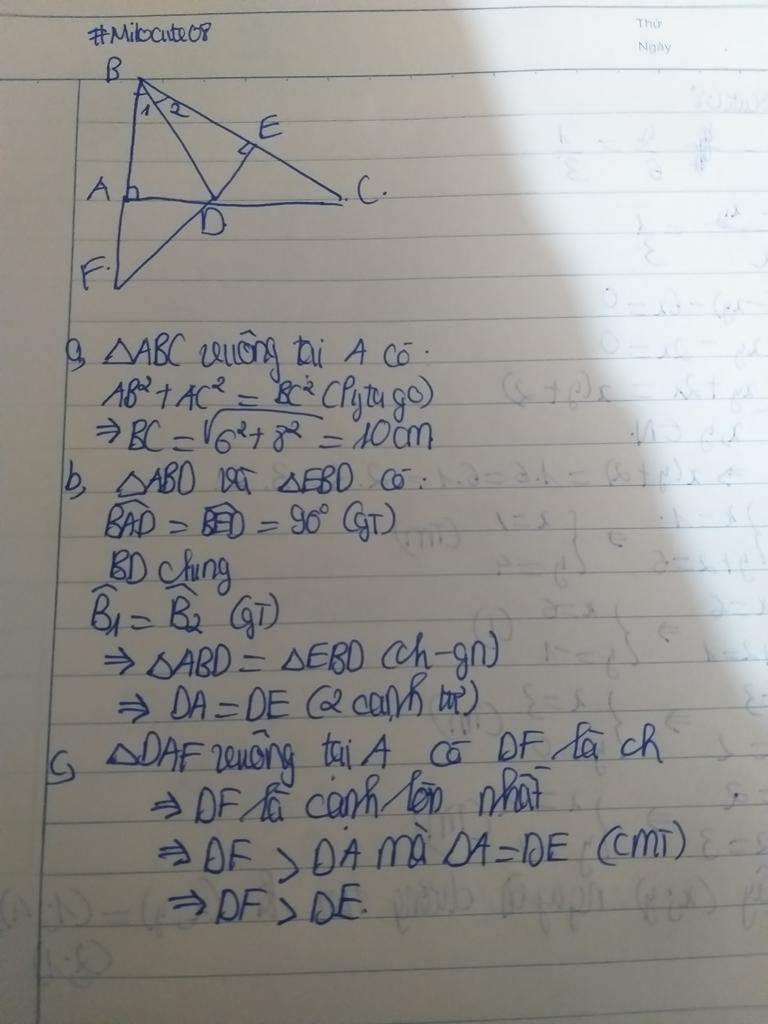 #Milocute08
Thứ
Ngày
B
1 2
E
A
D
C.
F.
a, △ABC vuông tại A có:
AB² + AC² = BC² (Pytago)
⇒ BC = √6²+8² = 10cm
b, △ABD và △EBD có:
BAD = BED = 90° (GT)
BD chung
B₁ = B₂ (GT)
⇒ △ABD = △EBD (ch-gn)
⇒ DA = DE (2 cạnh tư)
c, △DAF vuông tại A có DF là ch
⇒ DF là cạnh lớn nhất
⇒ DF > DA mà DA = DE (CMT)
⇒ DF > DE.